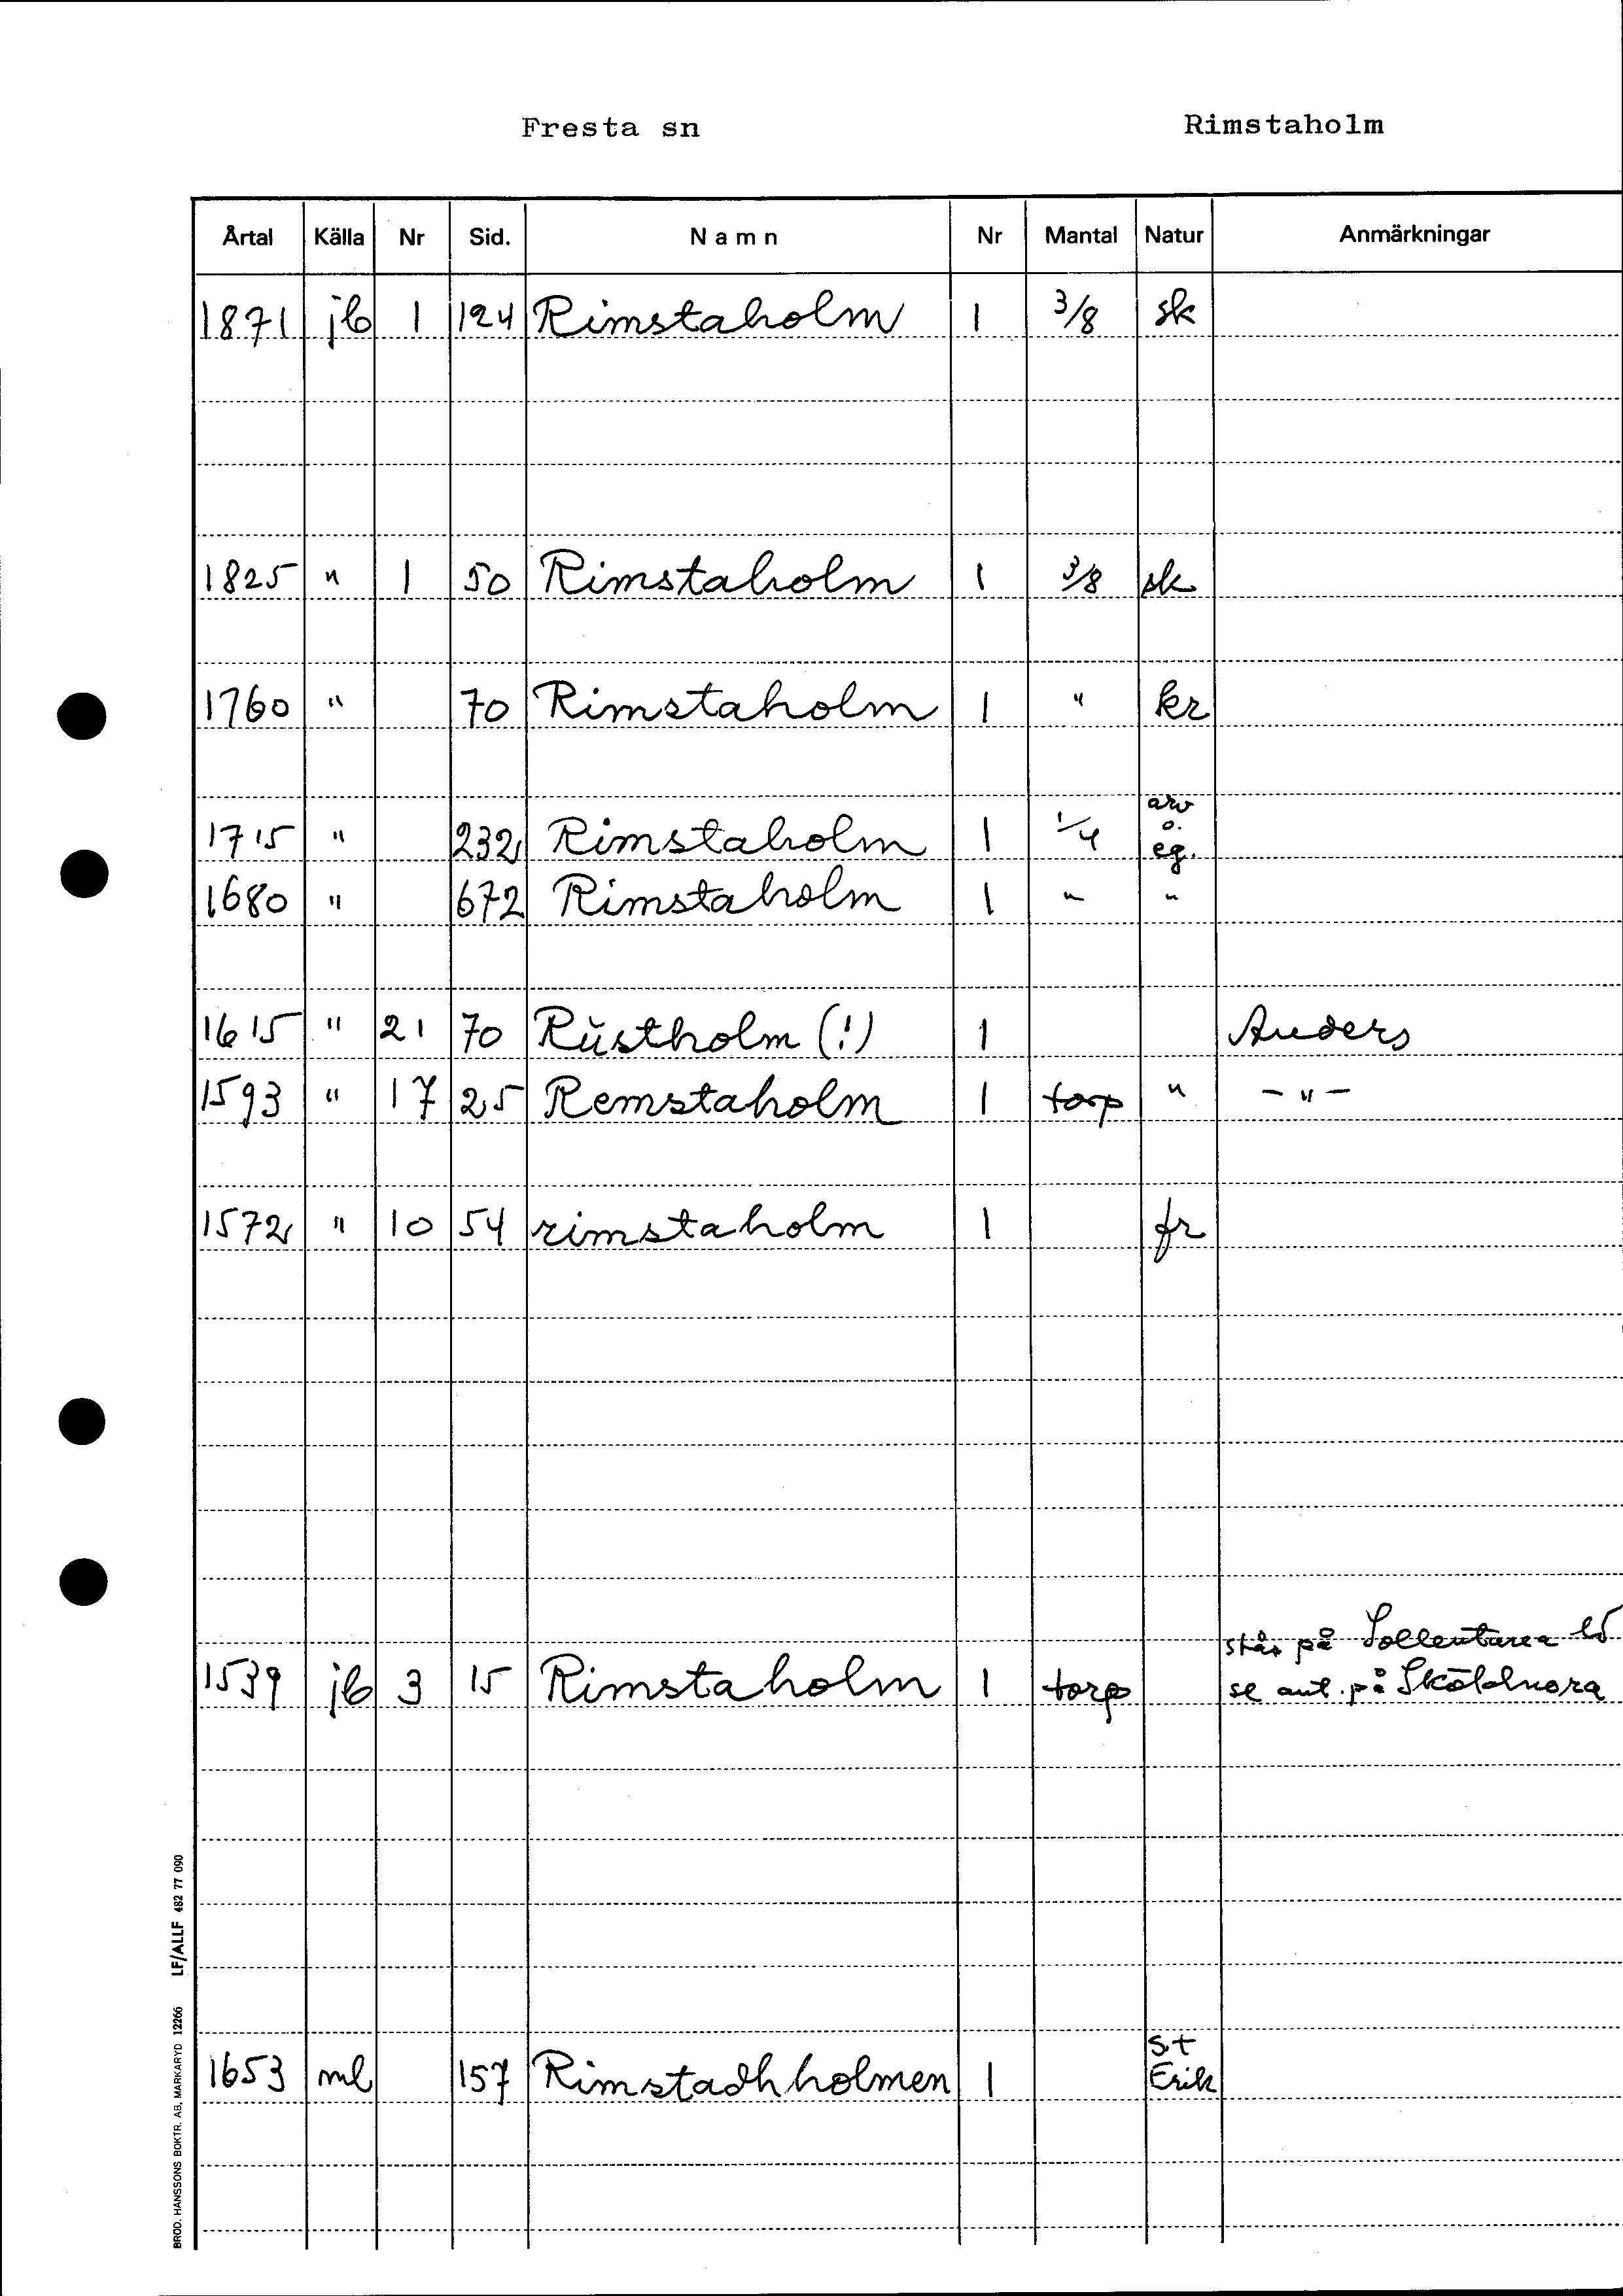 Fresta sn Rimstaholm
Årtal Källa Nr Sid. Namn Nr Mantal Natur Anmärkningar
1871 jb 1 124 Rimstaholm 1 3/8 sk
1825 " 1 50 Rimstaholm 1 3/8 sk
1760 " 70 Rimstaholm 1 " kr
arv
o.
1715 " 232 Rimstaholm 1 1/4 eg.
1680 " 672 Rimstaholm 1 " "
1615 " 21 70 Rüstholm (!) 1 Anders
1593 " 17 25 Remstaholm 1 torp " -"-
1572 " 10 54 rimstaholm 1 fr
står på Sollentuna
1539 jb 3 15 Rimstaholm 1 torp se ant. på Sköldnora
S:t
1653 ml 157 Rimstadhholmen 1 Erik
BROD. HANSSONS BOKTR. AB, MARKARYD 12266 LF/ALLF 482 77 090